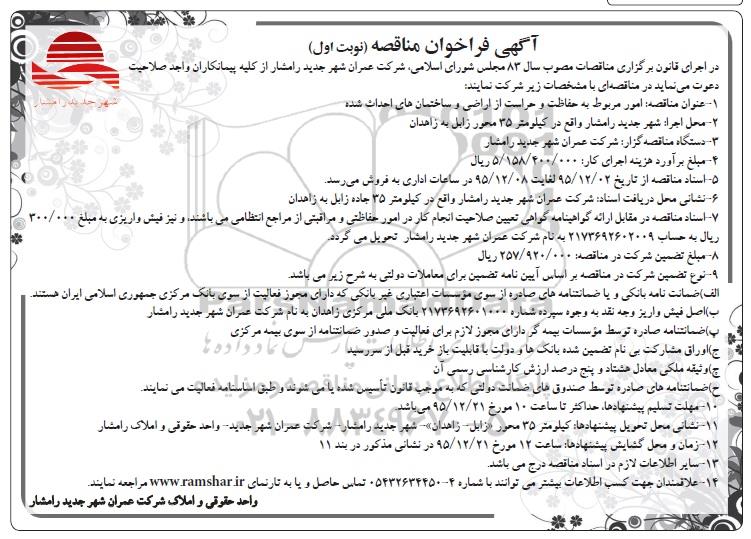 آگهی فراخوان مناقصه (نوبت اول)
شهر جدید رامشار
در اجرای قانون برگزاری مناقصات مصوب سال ۸۳ مجلس شورای اسلامی، شرکت عمران شهر جدید رامشار از کلیه پیمانکاران واجد صلاحیت
دعوت می‌نماید در مناقصه‌ای با مشخصات زیر شرکت نمایند:
۱-عنوان مناقصه: امور مربوط به حفاظت و حراست از اراضی و ساختمان های احداث شده
۲-محل اجرا: شهر جدید رامشار واقع در کیلومتر ۳۵ محور زابل به زاهدان
۳-دستگاه مناقصه‌گزار: شرکت عمران شهر جدید رامشار
۴-مبلغ برآورد هزینه اجرای کار: ۵/۱۵۸/۴۰۰/۰۰۰ ریال
۵-اسناد مناقصه از تاریخ ۹۵/۱۲/۰۲ لغایت ۹۵/۱۲/۰۸ در ساعات اداری به فروش می‌رسد.
۶-نشانی محل دریافت اسناد: شرکت عمران شهر جدید رامشار واقع در کیلومتر ۳۵ جاده زابل به زاهدان
۷-اسناد مناقصه در مقابل ارائه گواهینامه گواهی تعیین صلاحیت انجام کار در امور حفاظتی و مراقبتی از مراجع انتظامی می باشند، و نیز فیش واریزی به مبلغ ۳۰۰/۰۰۰
ریال به حساب ۲۱۷۳۶۹۲۶۰۲۰۰۹ به نام شرکت عمران شهر جدید رامشار تحویل می گردد.
۸-مبلغ تضمین شرکت در مناقصه: ۲۵۷/۹۲۰/۰۰۰ ریال
۹-نوع تضمین شرکت در مناقصه بر اساس آیین نامه تضمین برای معاملات دولتی به شرح زیر می باشد.
الف)ضمانت نامه بانکی و یا ضمانتنامه های صادره از سوی مؤسسات اعتباری غیر بانکی که دارای مجوز فعالیت از سوی بانک مرکزی جمهوری اسلامی ایران هستند.
ب)اصل فیش واریز وجه نقد به وجوه سپرده شماره ۲۱۷۳۶۹۲۶۰۱۰۰۰ بانک ملی مرکزی زاهدان به نام شرکت عمران شهر جدید رامشار
پ)ضمانتنامه صادره توسط مؤسسات بیمه گر دارای مجوز لازم برای فعالیت و صدور ضمانتنامه از سوی بیمه مرکزی
ج)اوراق مشارکت بی نام تضمین شده بانک ها و دولت با قابلیت باز خرید قبل از سررسید
چ)وثیقه ملکی معادل هشتاد و پنج درصد ارزش کارشناسی رسمی آن
ح)ضمانتنامه های صادره توسط صندوق های ضمانت دولتی که به موجب قانون تأسیس شده یا می شوند و طبق اساسنامه فعالیت می نمایند.
۱۰-مهلت تسلیم پیشنهادها: حداکثر تا ساعت ۱۰ مورخ ۹۵/۱۲/۲۱ می‌باشد.
۱۱-نشانی محل تحویل پیشنهادها: کیلومتر ۳۵ محور «زابل- زاهدان»- شهر جدید رامشار- شرکت عمران شهر جدید- واحد حقوقی و املاک رامشار
۱۲-زمان و محل گشایش پیشنهادها: ساعت ۱۲ مورخ ۹۵/۱۲/۲۱ در نشانی مذکور در بند ۱۱
۱۳-سایر اطلاعات لازم در اسناد مناقصه درج می باشد.
۱۴-علاقمندان جهت کسب اطلاعات بیشتر می توانند با شماره ۴-۰۵۴۳۲۶۳۴۴۵۰ تماس حاصل و یا به تارنمای www.ramshar.ir مراجعه نمایند.
واحد حقوقی و املاک شرکت عمران شهر جدید رامشار